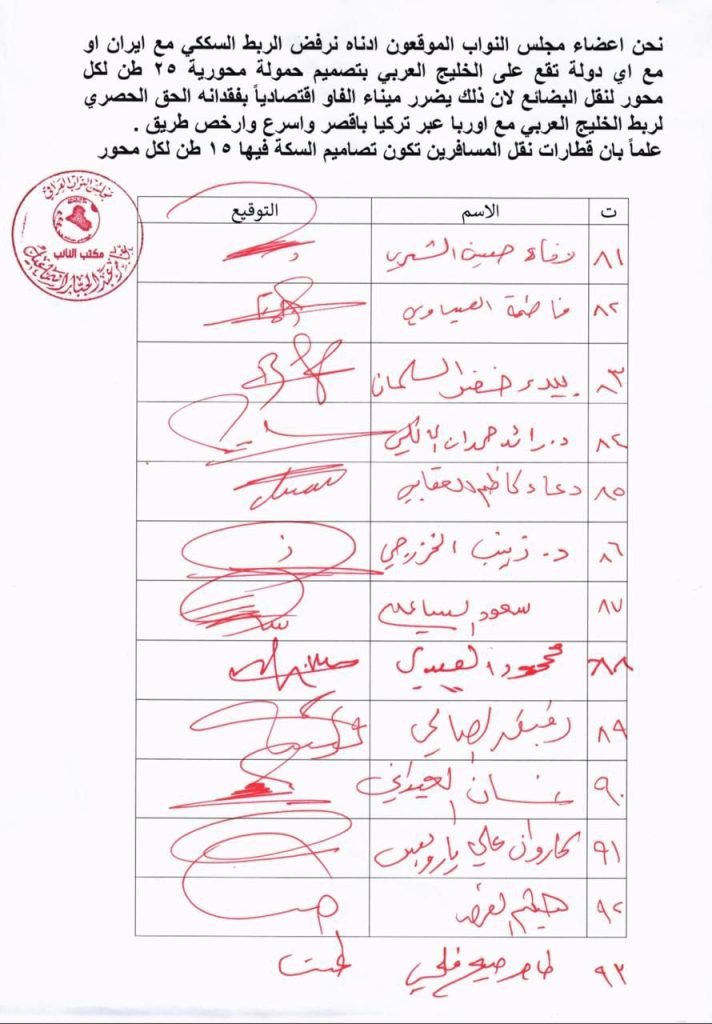 نحن اعضاء مجلس النواب الموقعون ادناه نرفض الربط السككي مع ايران او
مع اي دولة تقع على الخليج العربي بتصميم حمولة محورية ٢٥ طن لكل
محور لنقل البضائع لان ذلك يضرر ميناء الفاو اقتصادياً بفقدانه الحق الحصري
لربط الخليج العربي مع اوربا عبر تركيا باقصر واسرع وارخص طريق .
علماً بان قطارات نقل المسافرين تكون تصاميم السكة فيها ١٥ طن لكل محور
مجلس النواب العراقي
مكتب النائب
ت الاسم التوقيع
٨١ حسين الشمري
٨٢ فاطمة العيساوي
٨٣ خضر السلمان
٨٤ د. رائد حمدان المالكي
٨٥ دعاء كاظم
٨٦ د. زينب الخزرجي
٨٧ سعود الساعدي
٨٨
٨٩ رفيق الصالحي
٩٠ العيداني
٩١ كاروان علي يارويس
٩٢ هيثم
٩٣